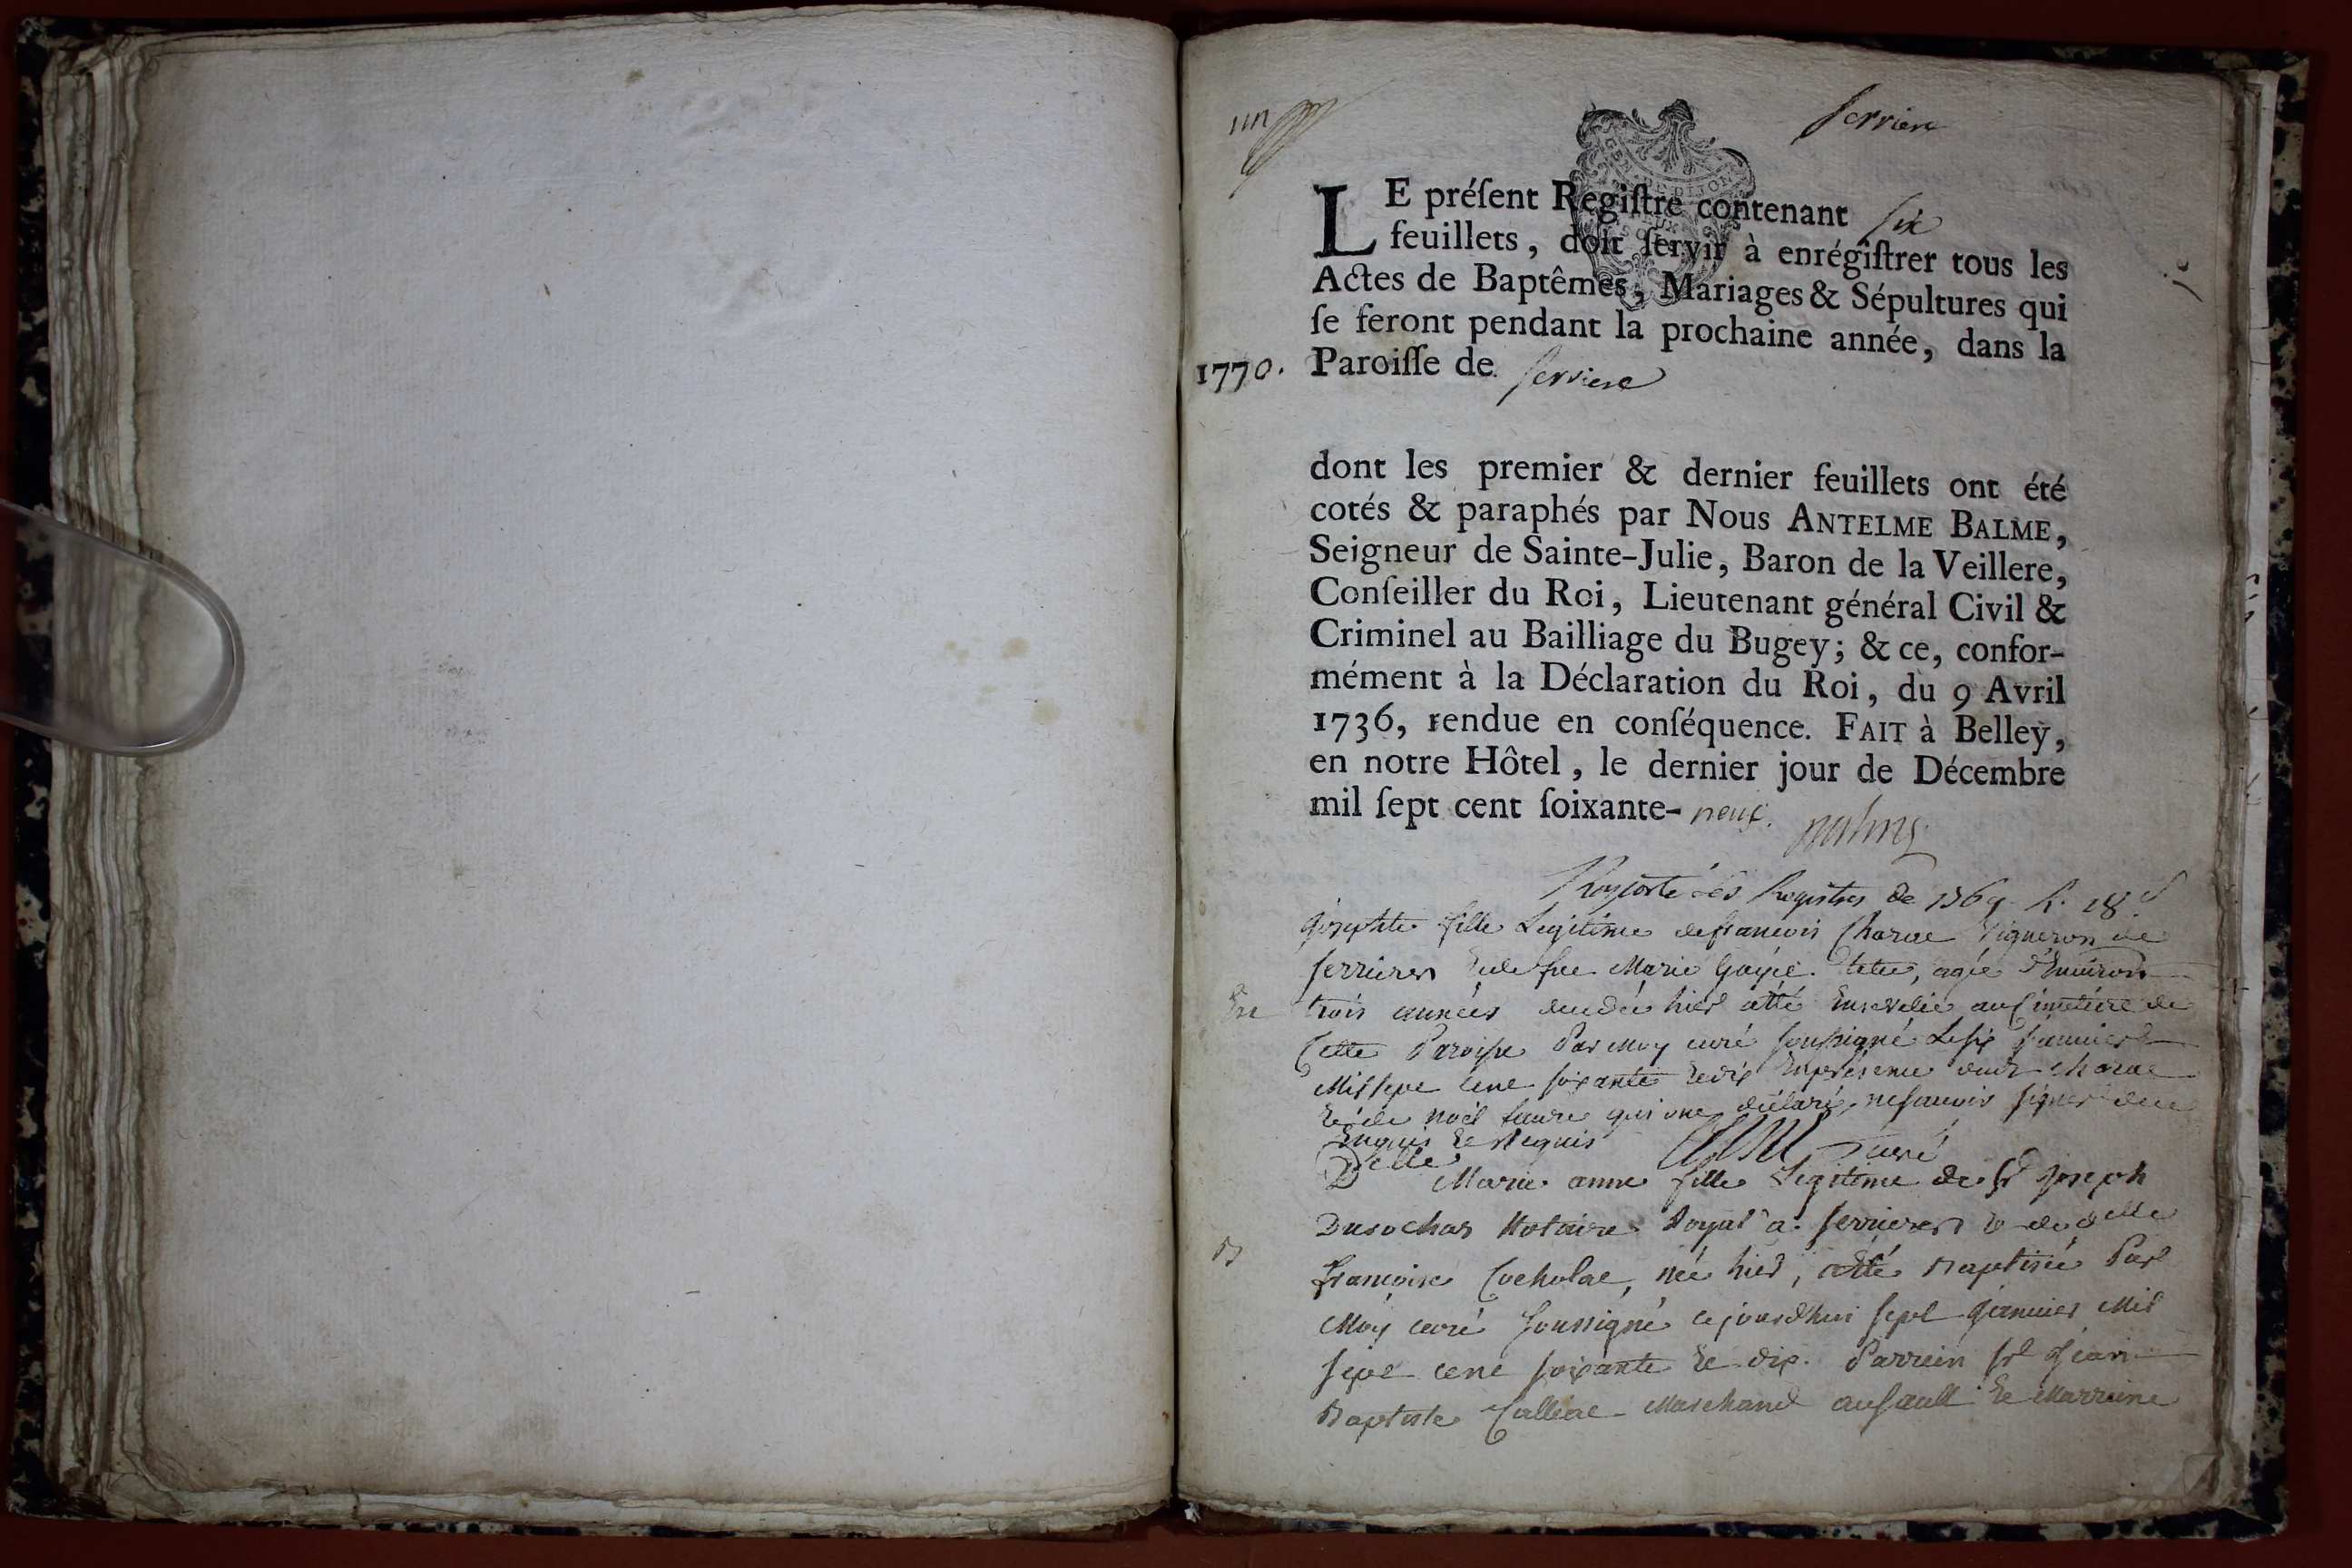 un
serriere
LE préſent Regiſtre contenant six
feuillets, doit ſervir à enrégiſtrer tous les
Actes de Baptêmes, Mariages & Sépultures qui
ſe feront pendant la prochaine année, dans la
1770. Paroiſſe de serriere
dont les premier & dernier feuillets ont été
cotés & paraphés par Nous ANTELME BALME,
Seigneur de Sainte-Julie, Baron de la Veillere,
Conſeiller du Roi, Lieutenant général Civil &
Criminel au Bailliage du Bugey; & ce, confor-
mément à la Déclaration du Roi, du 9 Avril
1736, rendue en conſéquence. FAIT à Belley,
en notre Hôtel, le dernier jour de Décembre
mil ſept cent ſoixante- neuf. Balme
Registres de 1769
Josephte fille Legitime de francois Charue Vigneron de
serrieres Marie agée d'Environ
trois années decedée hier atté Ensevelie au Cimetiere de
Cette Paroisse Par moy curé soussigné Lesix Janvier
Mil sept cent soixante et dix Enpresence dud Charue
et de noël faure qui ont déclaré nesauoir signer dece
Enquis et Requis curé
Delle Marie anne fille Legitime de sr Joseph
Dusochas Notaire Royal a serrieres & de delle
B
françoise Cocholat, née hier, atté Baptisée Par
Moy curé soussigné cejourd'hui sept Janvier Mil
sept cent soixante et dix. Parrein sr Jean
Baptiste Marchand ausault et Marraine